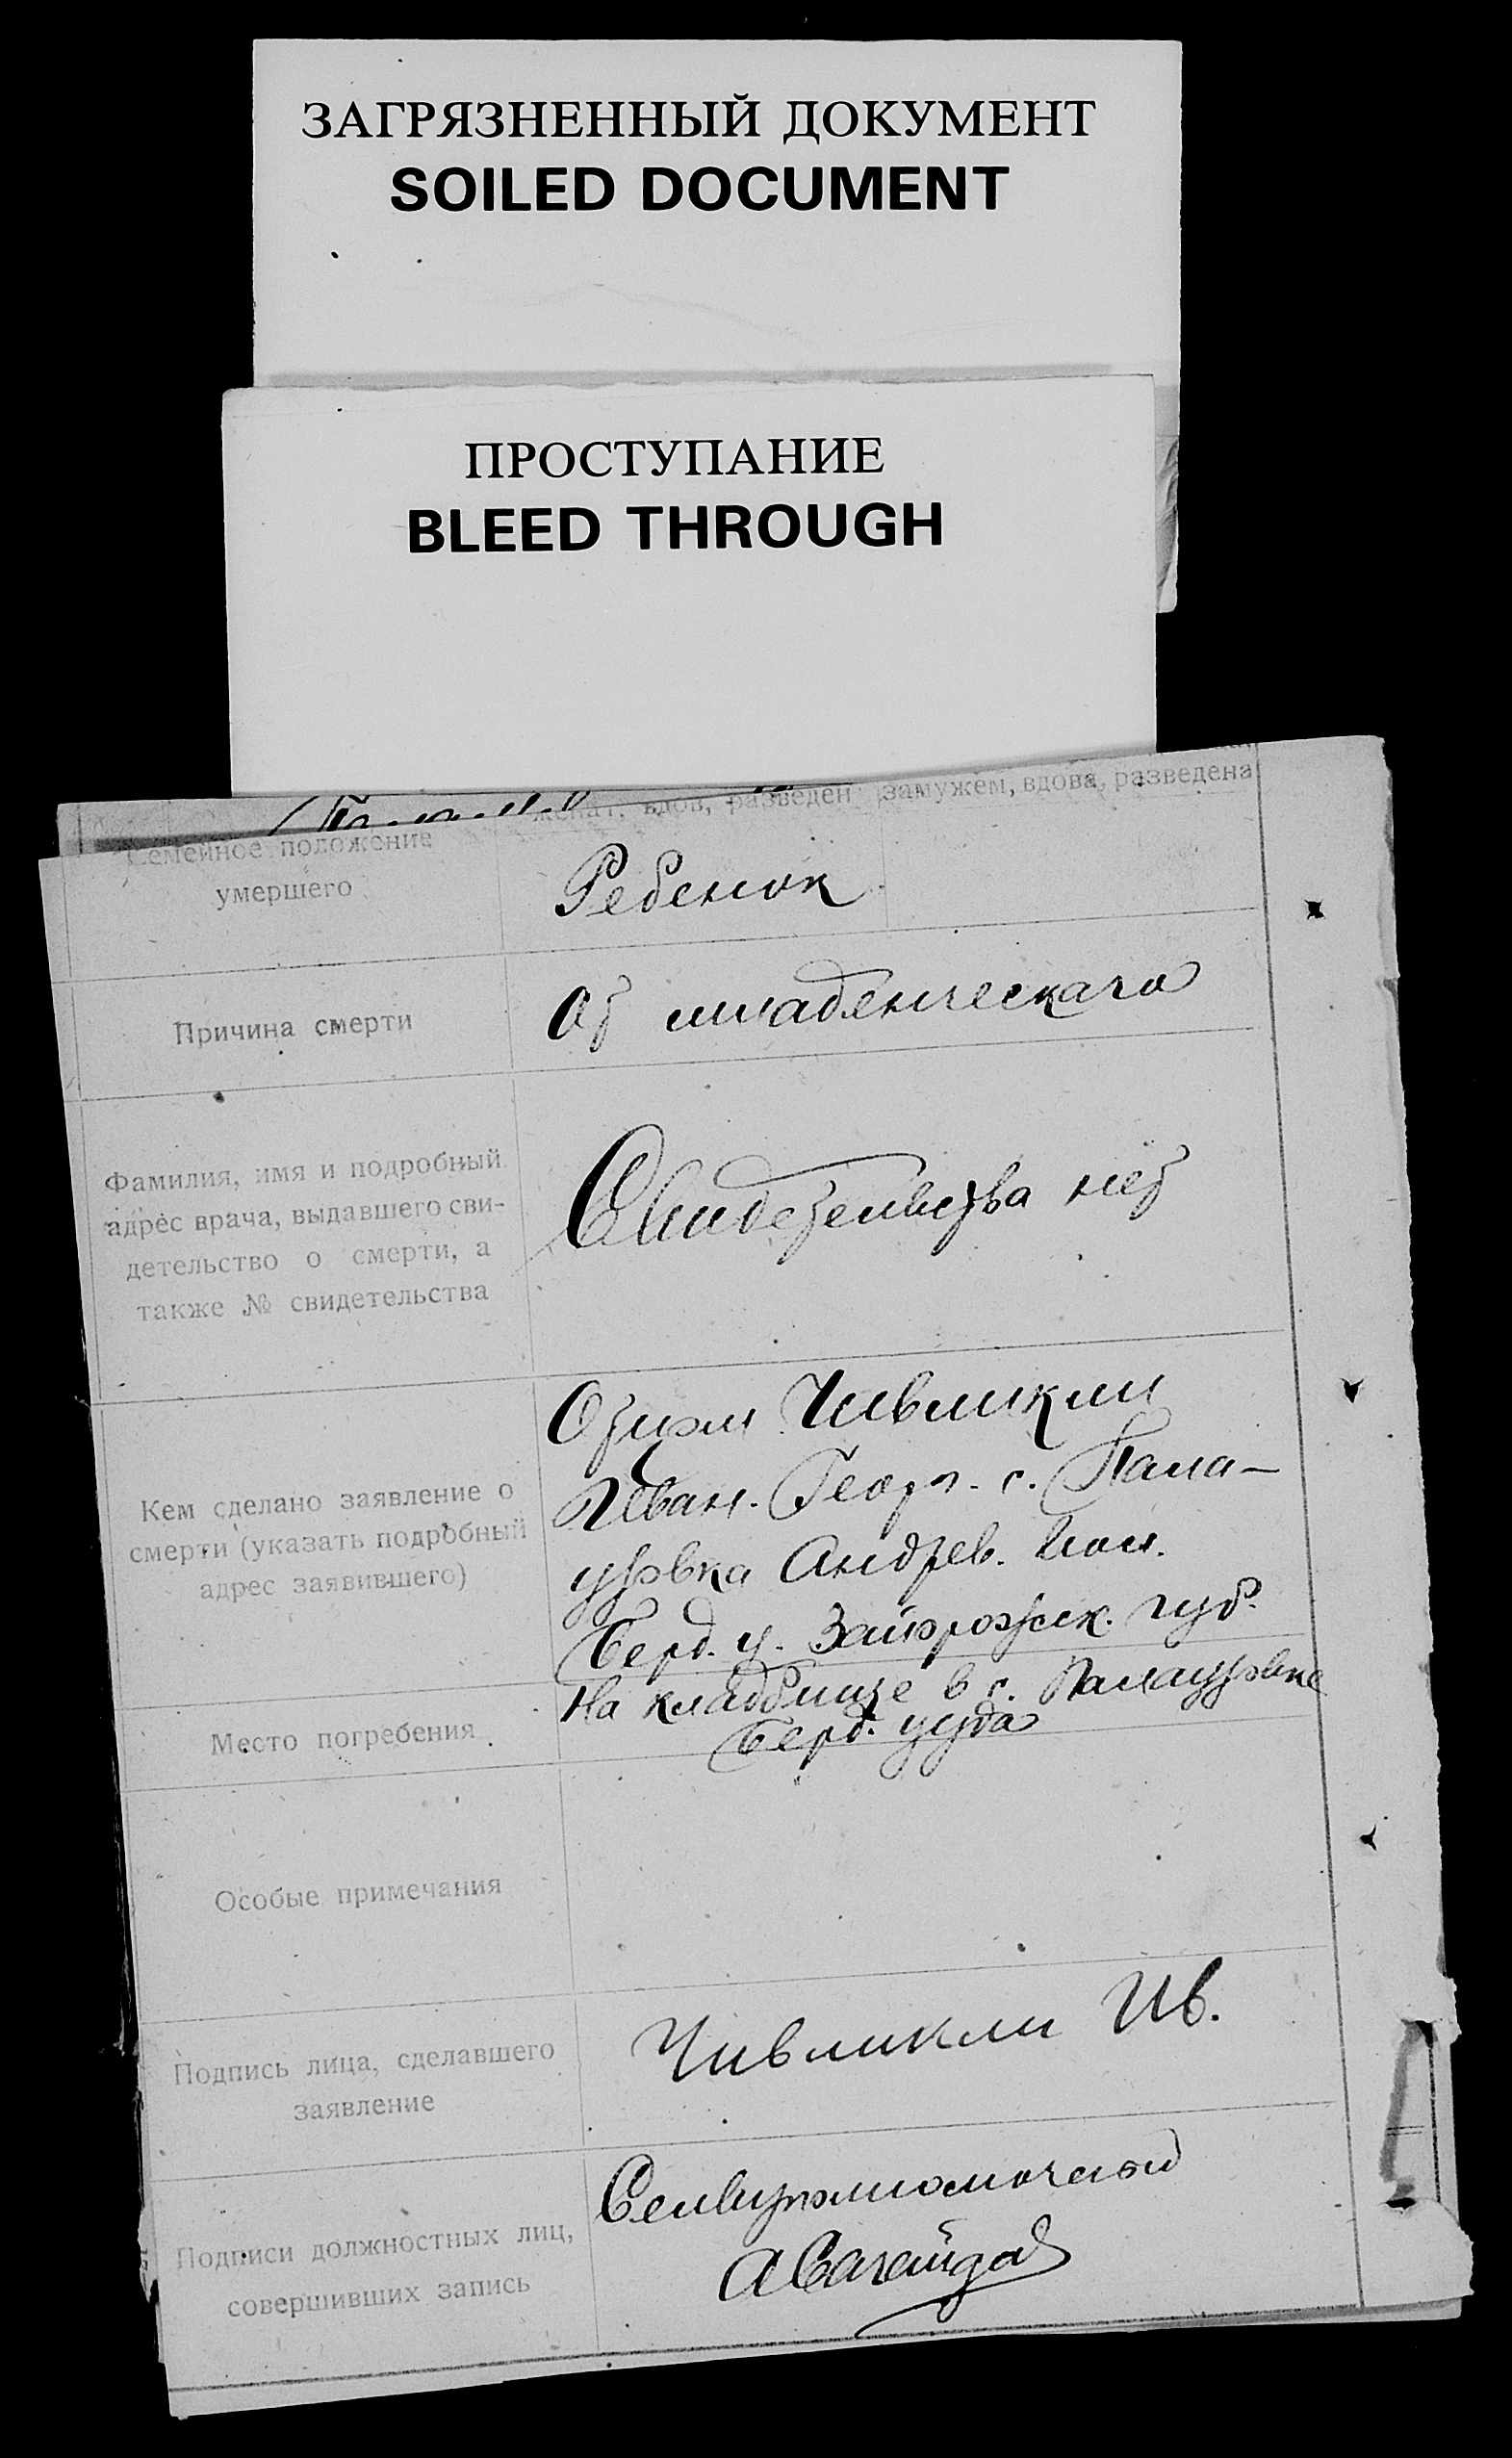 ЗАГРЯЗНЕННЫЙ ДОКУМЕНТ
SOILED DOCUMENT
ПРОСТУПАНИЕ
BLEED THROUGH
женат, вдов, разведен замужем, вдова, разведена
Семейное положение
умершего
Ребенок
Причина смерти
От младенческаго
Фамилия, имя и подробный
адрес врача, выдавшего сви-
детельство о смерти, а
также № свидетельства
Свидетельства нет
Кем сделано заявление о
смерти (указать подробный
адрес заявившего)
Отцом Чивликли
Иван. Георг. с. Пала-
узовка Андрев. вол.
Берд. у. Запорожск. губ.
Место погребения
На кладбище в с. Палаузовке
Берд. уезда
Особые примечания
Подпись лица, сделавшего
заявление
Чивликли Ив.
Подписи должностных лиц,
совершивших запись
Сельуполномоченой